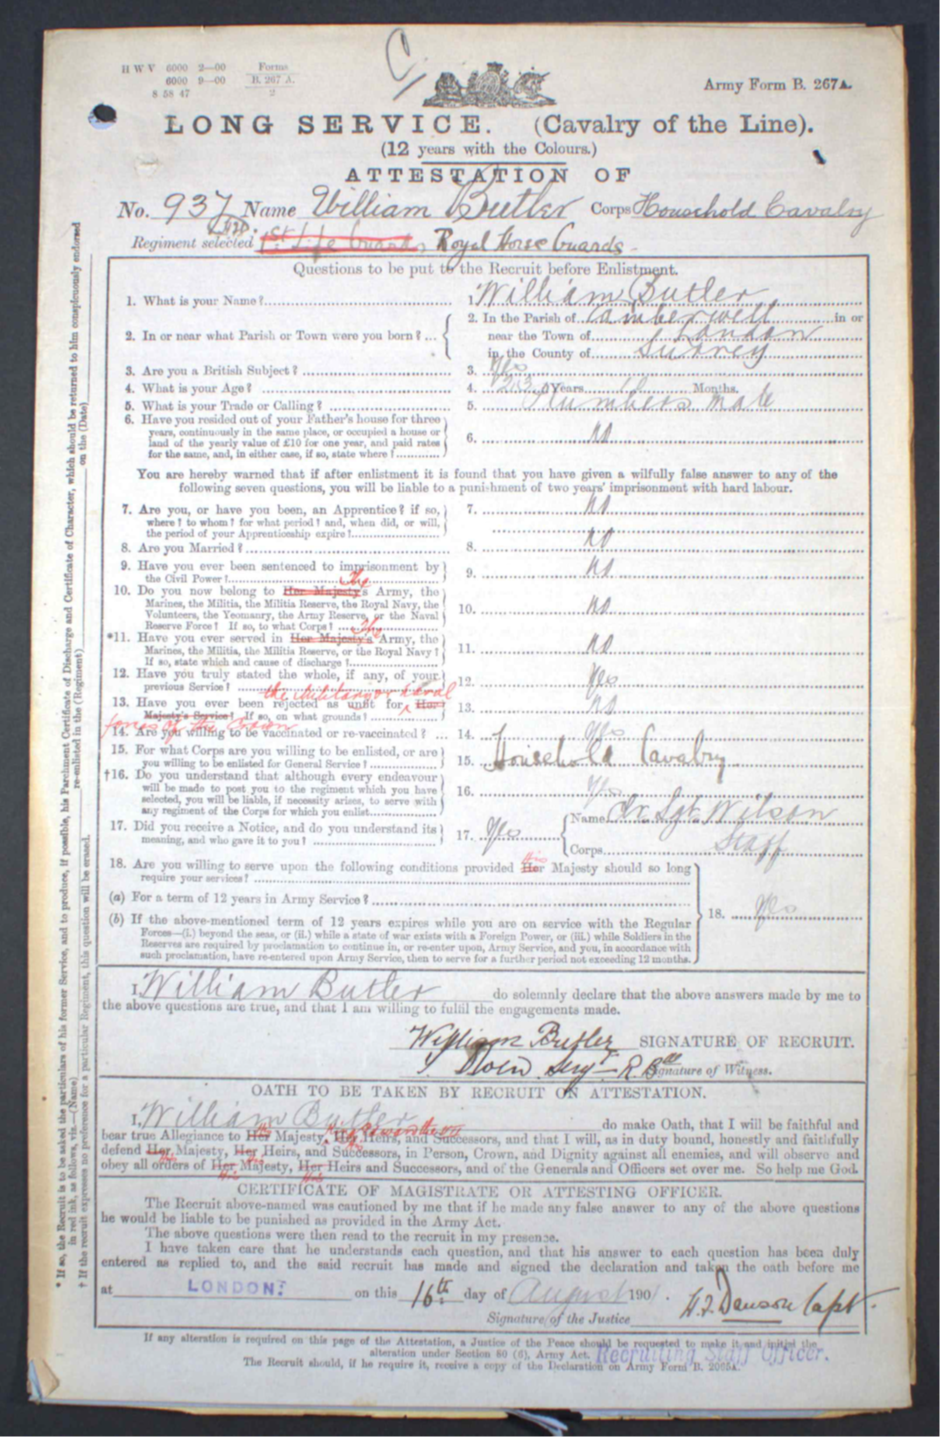 H W V 6000 2—00
6000 9—00
8 58 47
Forms
B. 267 A.
2
C.
Army Form B. 267A.
LONG SERVICE. (Cavalry of the Line).
(12 years with the Colours.)
ATTESTATION OF
No. 937 Name William Butler Corps Household Cavalry
Regiment selected 1st Life Guards, Royal Horse Guards
Questions to be put to the Recruit before Enlistment.
1. What is your Name? 1. William Butler
2. In or near what Parish or Town were you born? ... 2. In the Parish of Camberwell in or
near the Town of London
in the County of Surrey
3. Are you a British Subject? 3. Yes
4. What is your Age? 4. Years Months.
5. What is your Trade or Calling? 5. Plumbers Mate
6. Have you resided out of your Father's house for three
years, continuously in the same place, or occupied a house or
land of the yearly value of £10 for one year, and paid rates
for the same, and, in either case, if so, state where? 6. No
You are hereby warned that if after enlistment it is found that you have given a wilfully false answer to any of the
following seven questions, you will be liable to a punishment of two years' imprisonment with hard labour.
7. Are you, or have you been, an Apprentice? if so, 7. No
where? to whom? for what period? and, when did, or will,
the period of your Apprenticeship expire?
8. Are you Married? 8. No
9. Have you ever been sentenced to imprisonment by
the Civil Power? 9. No
10. Do you now belong to Her Majesty's The Army, the
Marines, the Militia, the Militia Reserve, the Royal Navy, the
Volunteers, the Yeomanry, the Army Reserve, or the Naval
Reserve Force? If so, to what Corps? 10. No
*11. Have you ever served in Her Majesty's The Army, the
Marines, the Militia, the Militia Reserve, or the Royal Navy?
If so, state which and cause of discharge? 11. No
12. Have you truly stated the whole, if any, of your
previous Service? 12. Yes
the Military or Naval
13. Have you ever been rejected as unfit for Her
Majesty's Service? If so, on what grounds? 13. No
forces of the Crown
14. Are you willing to be vaccinated or re-vaccinated? ... 14. Yes
15. For what Corps are you willing to be enlisted, or are
you willing to be enlisted for General Service? 15. Household Cavalry
†16. Do you understand that although every endeavour
will be made to post you to the regiment which you have
selected, you will be liable, if necessity arises, to serve with
any regiment of the Corps for which you enlist 16. Yes
17. Did you receive a Notice, and do you understand its
meaning, and who gave it to you? 17. Yes Name Cr Sgt Wilson
Corps Staff
18. Are you willing to serve upon the following conditions provided Her His Majesty should so long
require your services?
(a) For a term of 12 years in Army Service?
(b) If the above-mentioned term of 12 years expires while you are on service with the Regular
Forces—(i.) beyond the seas, or (ii.) while a state of war exists with a Foreign Power, or (iii.) while Soldiers in the
Reserves are required by proclamation to continue in, or re-enter upon, Army Service, and you, in accordance with
such proclamation, have re-entered upon Army Service, then to serve for a further period not exceeding 12 months.
18. Yes
I, William Butler do solemnly declare that the above answers made by me to
the above questions are true, and that I am willing to fulfil the engagements made.
William Butler SIGNATURE OF RECRUIT.
Signature of Witness.
OATH TO BE TAKEN BY RECRUIT ON ATTESTATION.
I, William Butler do make Oath, that I will be faithful and
bear true Allegiance to Her His Majesty, Her Heirs, and Successors, and that I will, as in duty bound, honestly and faithfully
defend Her His Majesty, Her His Heirs, and Successors, in Person, Crown, and Dignity against all enemies, and will observe and
obey all orders of Her His Majesty, Her His Heirs and Successors, and of the Generals and Officers set over me. So help me God.
CERTIFICATE OF MAGISTRATE OR ATTESTING OFFICER.
The Recruit above-named was cautioned by me that if he made any false answer to any of the above questions
he would be liable to be punished as provided in the Army Act.
The above questions were then read to the recruit in my presence.
I have taken care that he understands each question, and that his answer to each question has been duly
entered as replied to, and the said recruit has made and signed the declaration and taken the oath before me
at LONDON. on this 16th day of August 1901.
Signature of the Justice Capt.
If any alteration is required on this page of the Attestation, a Justice of the Peace should be requested to make it and initial the
alteration under Section 80 (6), Army Act. Recruiting Staff Officer.
The Recruit should, if he require it, receive a copy of the Declaration on Army Form B. 2065A.
* If so, the Recruit is to be asked the particulars of his former Service, and to produce, if possible, his Parchment Certificate of Discharge and Certificate of Character, which should be returned to him conspicuously endorsed
in red ink, as follows, viz.—(Name) re-enlisted in the (Regiment) on the (Date)
† If the recruit expresses no preference for a particular Regiment, this question will be erased.